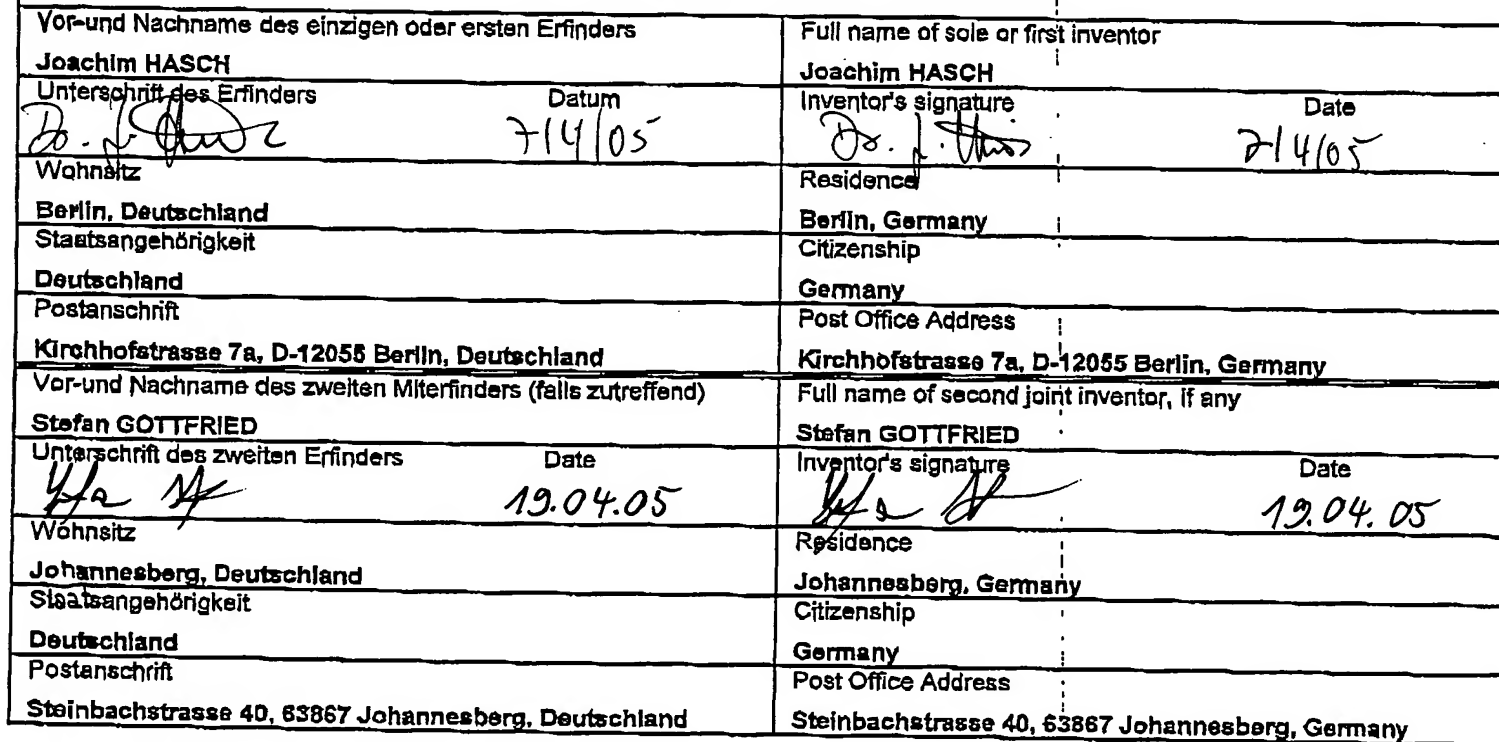 Vor-und Nachname des einzigen oder ersten Erfinders
Joachim HASCH
Unterschrift des Erfinders Datum
Dr. J. 7/4/05
Wohnsitz
Berlin, Deutschland
Staatsangehörigkeit
Deutschland
Postanschrift
Kirchhofstrasse 7a, D-12055 Berlin, Deutschland
Vor-und Nachname des zweiten Miterfinders (falls zutreffend)
Stefan GOTTFRIED
Unterschrift des zweiten Erfinders Date
19.04.05
Wohnsitz
Johannesberg, Deutschland
Staatsangehörigkeit
Deutschland
Postanschrift
Steinbachstrasse 40, 63867 Johannesberg, Deutschland
Full name of sole or first inventor
Joachim HASCH
Inventor's signature Date
Dr. J. 7/4/05
Residence
Berlin, Germany
Citizenship
Germany
Post Office Address
Kirchhofstrasse 7a, D-12055 Berlin, Germany
Full name of second joint inventor, if any
Stefan GOTTFRIED
Inventor's signature Date
19.04.05
Residence
Johannesberg, Germany
Citizenship
Germany
Post Office Address
Steinbachstrasse 40, 63867 Johannesberg, Germany